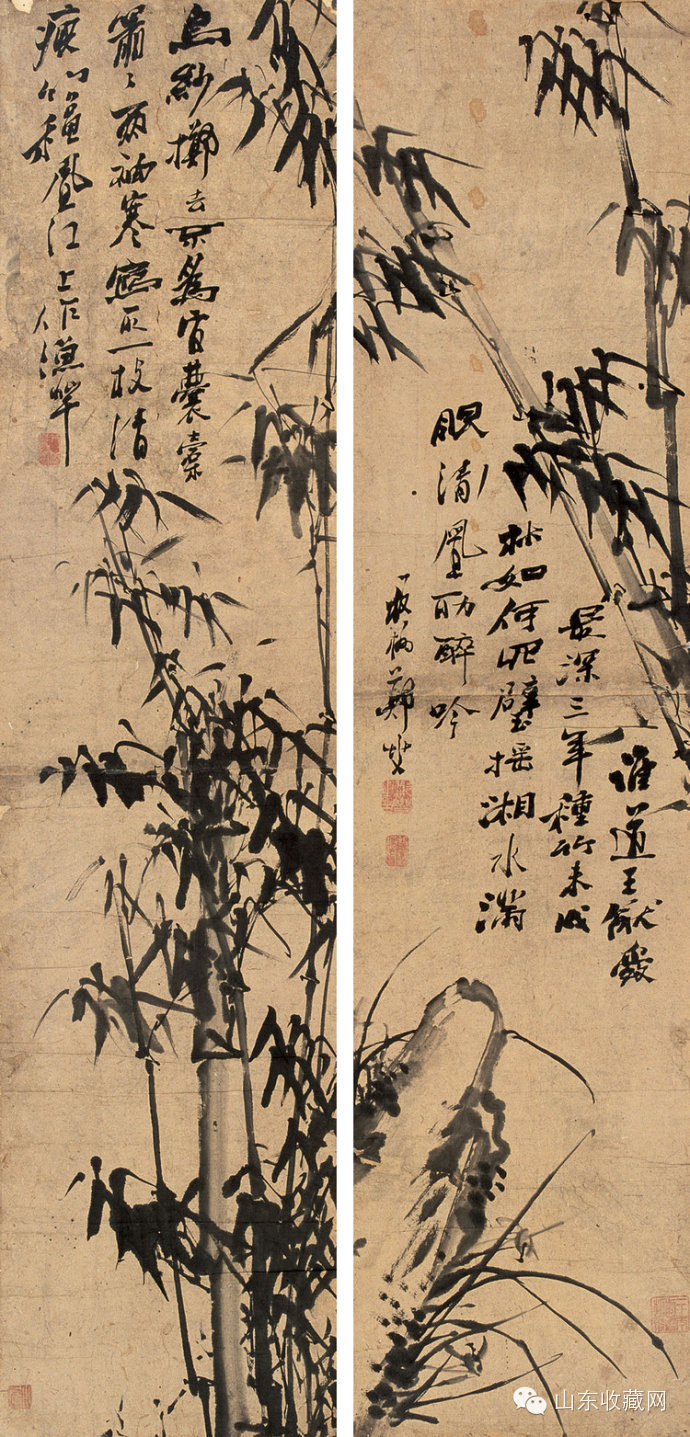 誰道王猷愛
最深三年種竹未成
林如何四壁搖湘水滿
眼清風助醉吟
板橋鄭燮
烏紗擲去不為官囊橐
蕭〻兩袖寒寫取一枝清
瘦竹秋風江上作漁竿
山东收藏网